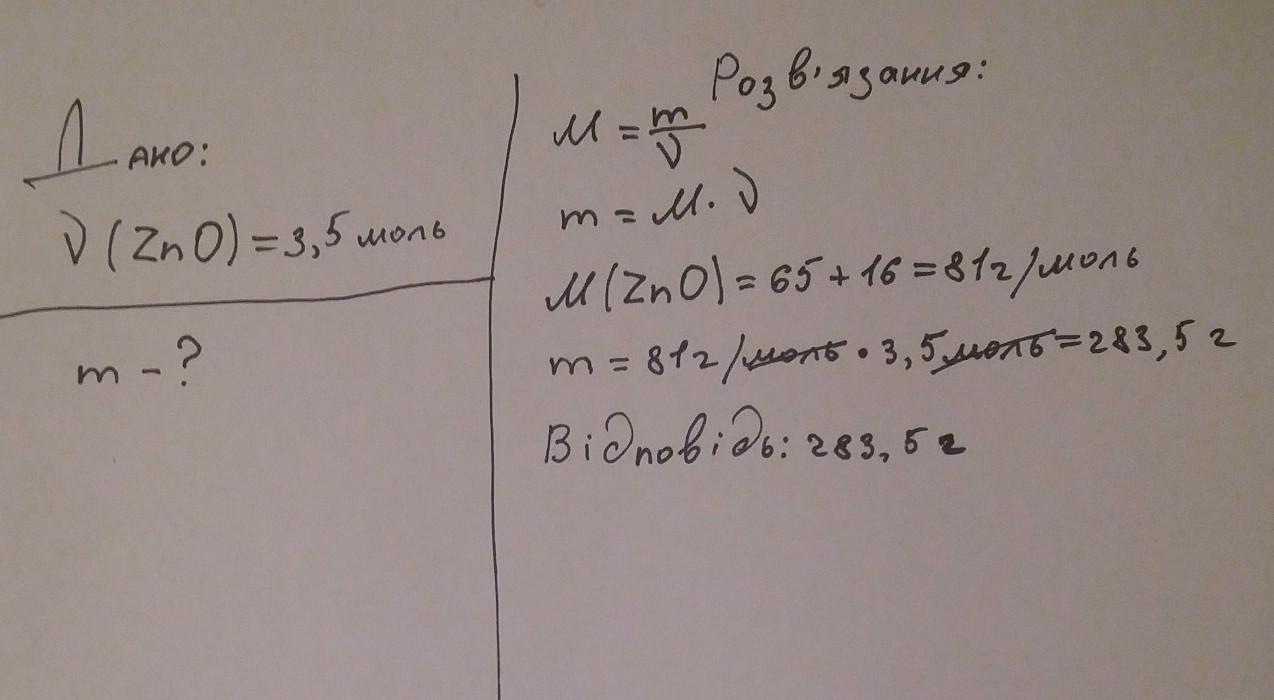 Дано:
ν(ZnO)=3,5 моль
m-?
Розв'язання:
M = m/ν
m = M·ν
M(ZnO)=65+16=81г/моль
m = 81г/моль·3,5моль=283,5 г
Відповідь: 283,5 г